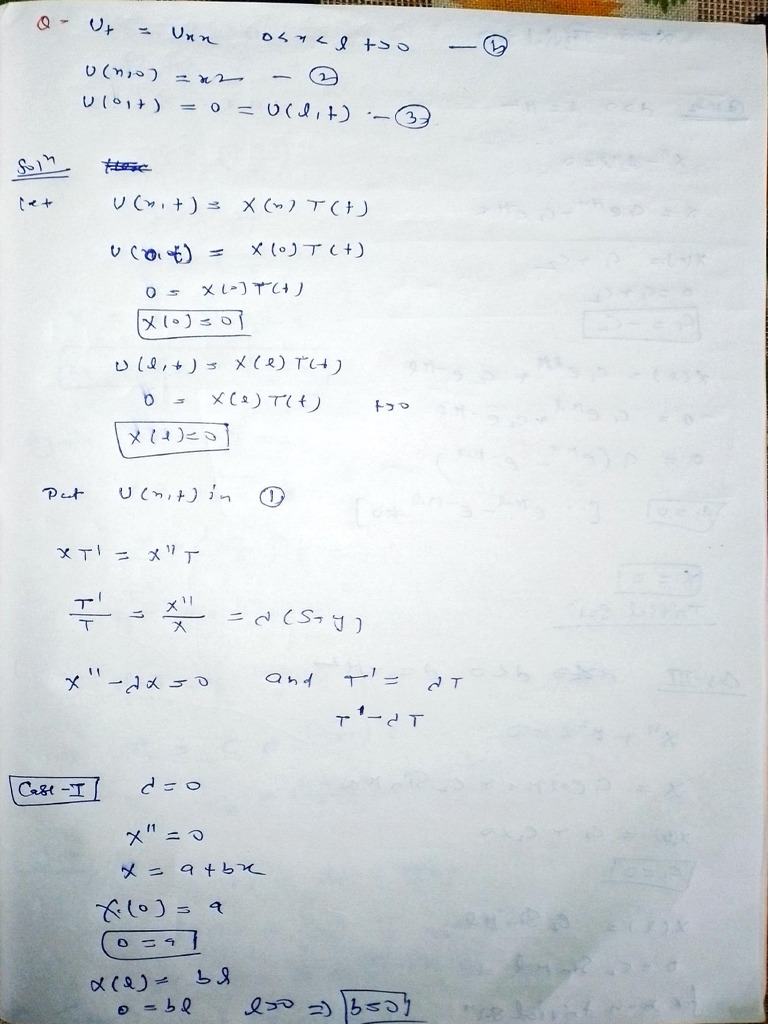 Q - U_t = U_xx 0<x<l t>0 — ①
U(x,0) = x2 — ②
U(0,t) = 0 = U(l,t) — ③
Solⁿ
let U(x,t) = X(x) T(t)
U(0,t) = X(0) T(t)
0 = X(0) T(t)
X(0) = 0
U(l,t) = X(l) T(t)
0 = X(l) T(t) t>0
X(l) = 0
Put U(x,t) in ①
XT' = X''T
T'/T = X''/X = λ (Say)
X'' - λX = 0 and T' = λT
T' - λT
Case-I λ = 0
X'' = 0
X = a + bx
X(0) = a
0 = a
X(l) = bl
0 = bl l>0 ⇒ b=0